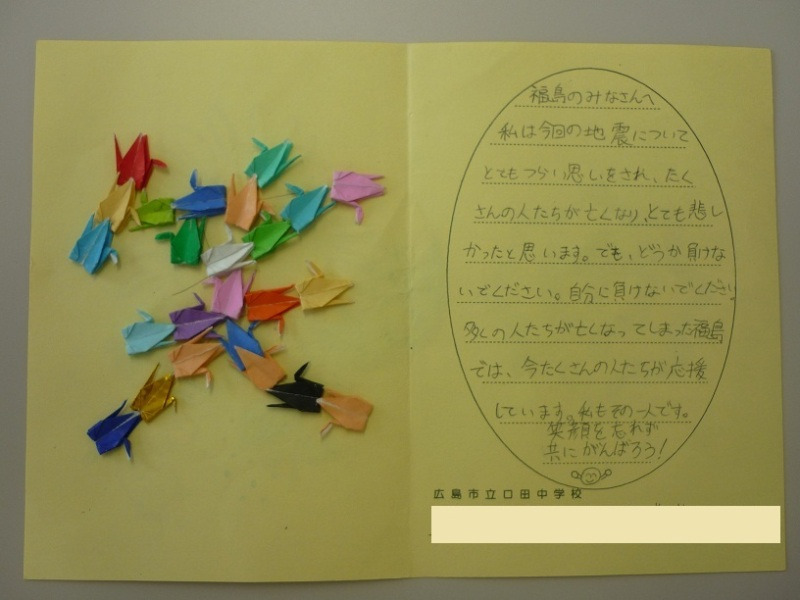 福島のみなさんへ
私は今回の地震について
とてもつらい思いをされ、たく
さんの人たちが亡くなり、とても悲し
かったと思います。でも、どうか負けな
いでください。自分に負けないでください
多くの人たちが亡くなってしまった福島
では、今たくさんの人たちが応援
しています。私もその一人です。
笑顔を忘れず
共にがんばろう!
広島市立口田中学校